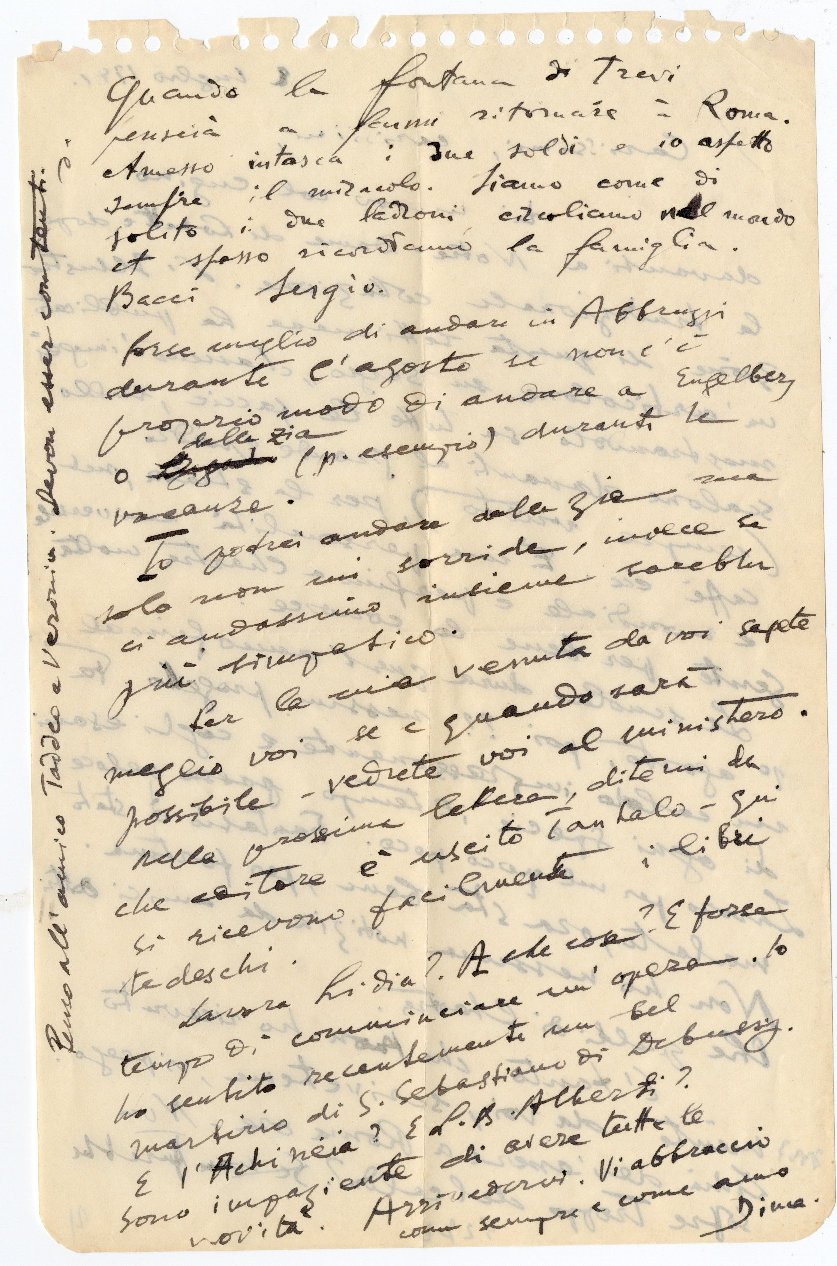 Quando la fontana di Trevi
penserà a farmi ritornare à Roma.
intasca i due soldi e io aspetto
sempre il miracolo. Siamo come di
solito i due ladroni circoliamo nel mondo
et spesso ricordiamo la famiglia.
Bacci Sergio.
forse meglio di andare in Abbruzzi
durante l'agosto se non c'è
proprio modo di andare a Engelberg
o dalla zia (p. esempio) durante le
vacanze.
Io potrei andare dalla zia ma
solo non mi sorride, invece se
ci andassimo insieme sarebbe
più simpatico.
Per la mia venuta da voi sapete
meglio voi se e quando sarà
possibile - vedrete voi al ministero.
Nella prossima lettera, ditemi da
che editore è uscito Tantalo - qui
si ricevono facilmente i libri
tedeschi.
Lavora Lidia? A che cosa? E forse
tempo di comminciare un'opera. Io
ho sentito recentemente un bel
martirio di S. Sebastiano di Debussy.
E l'Achilleia? E L. B. Alberti?
Sono impaziente di avere tutte le
novità. Arrivedervi. Vi abbraccio
come sempre e come amo
Dima.
Penso all'amico Taddeo a Veronica. devon esser contenti.
D.